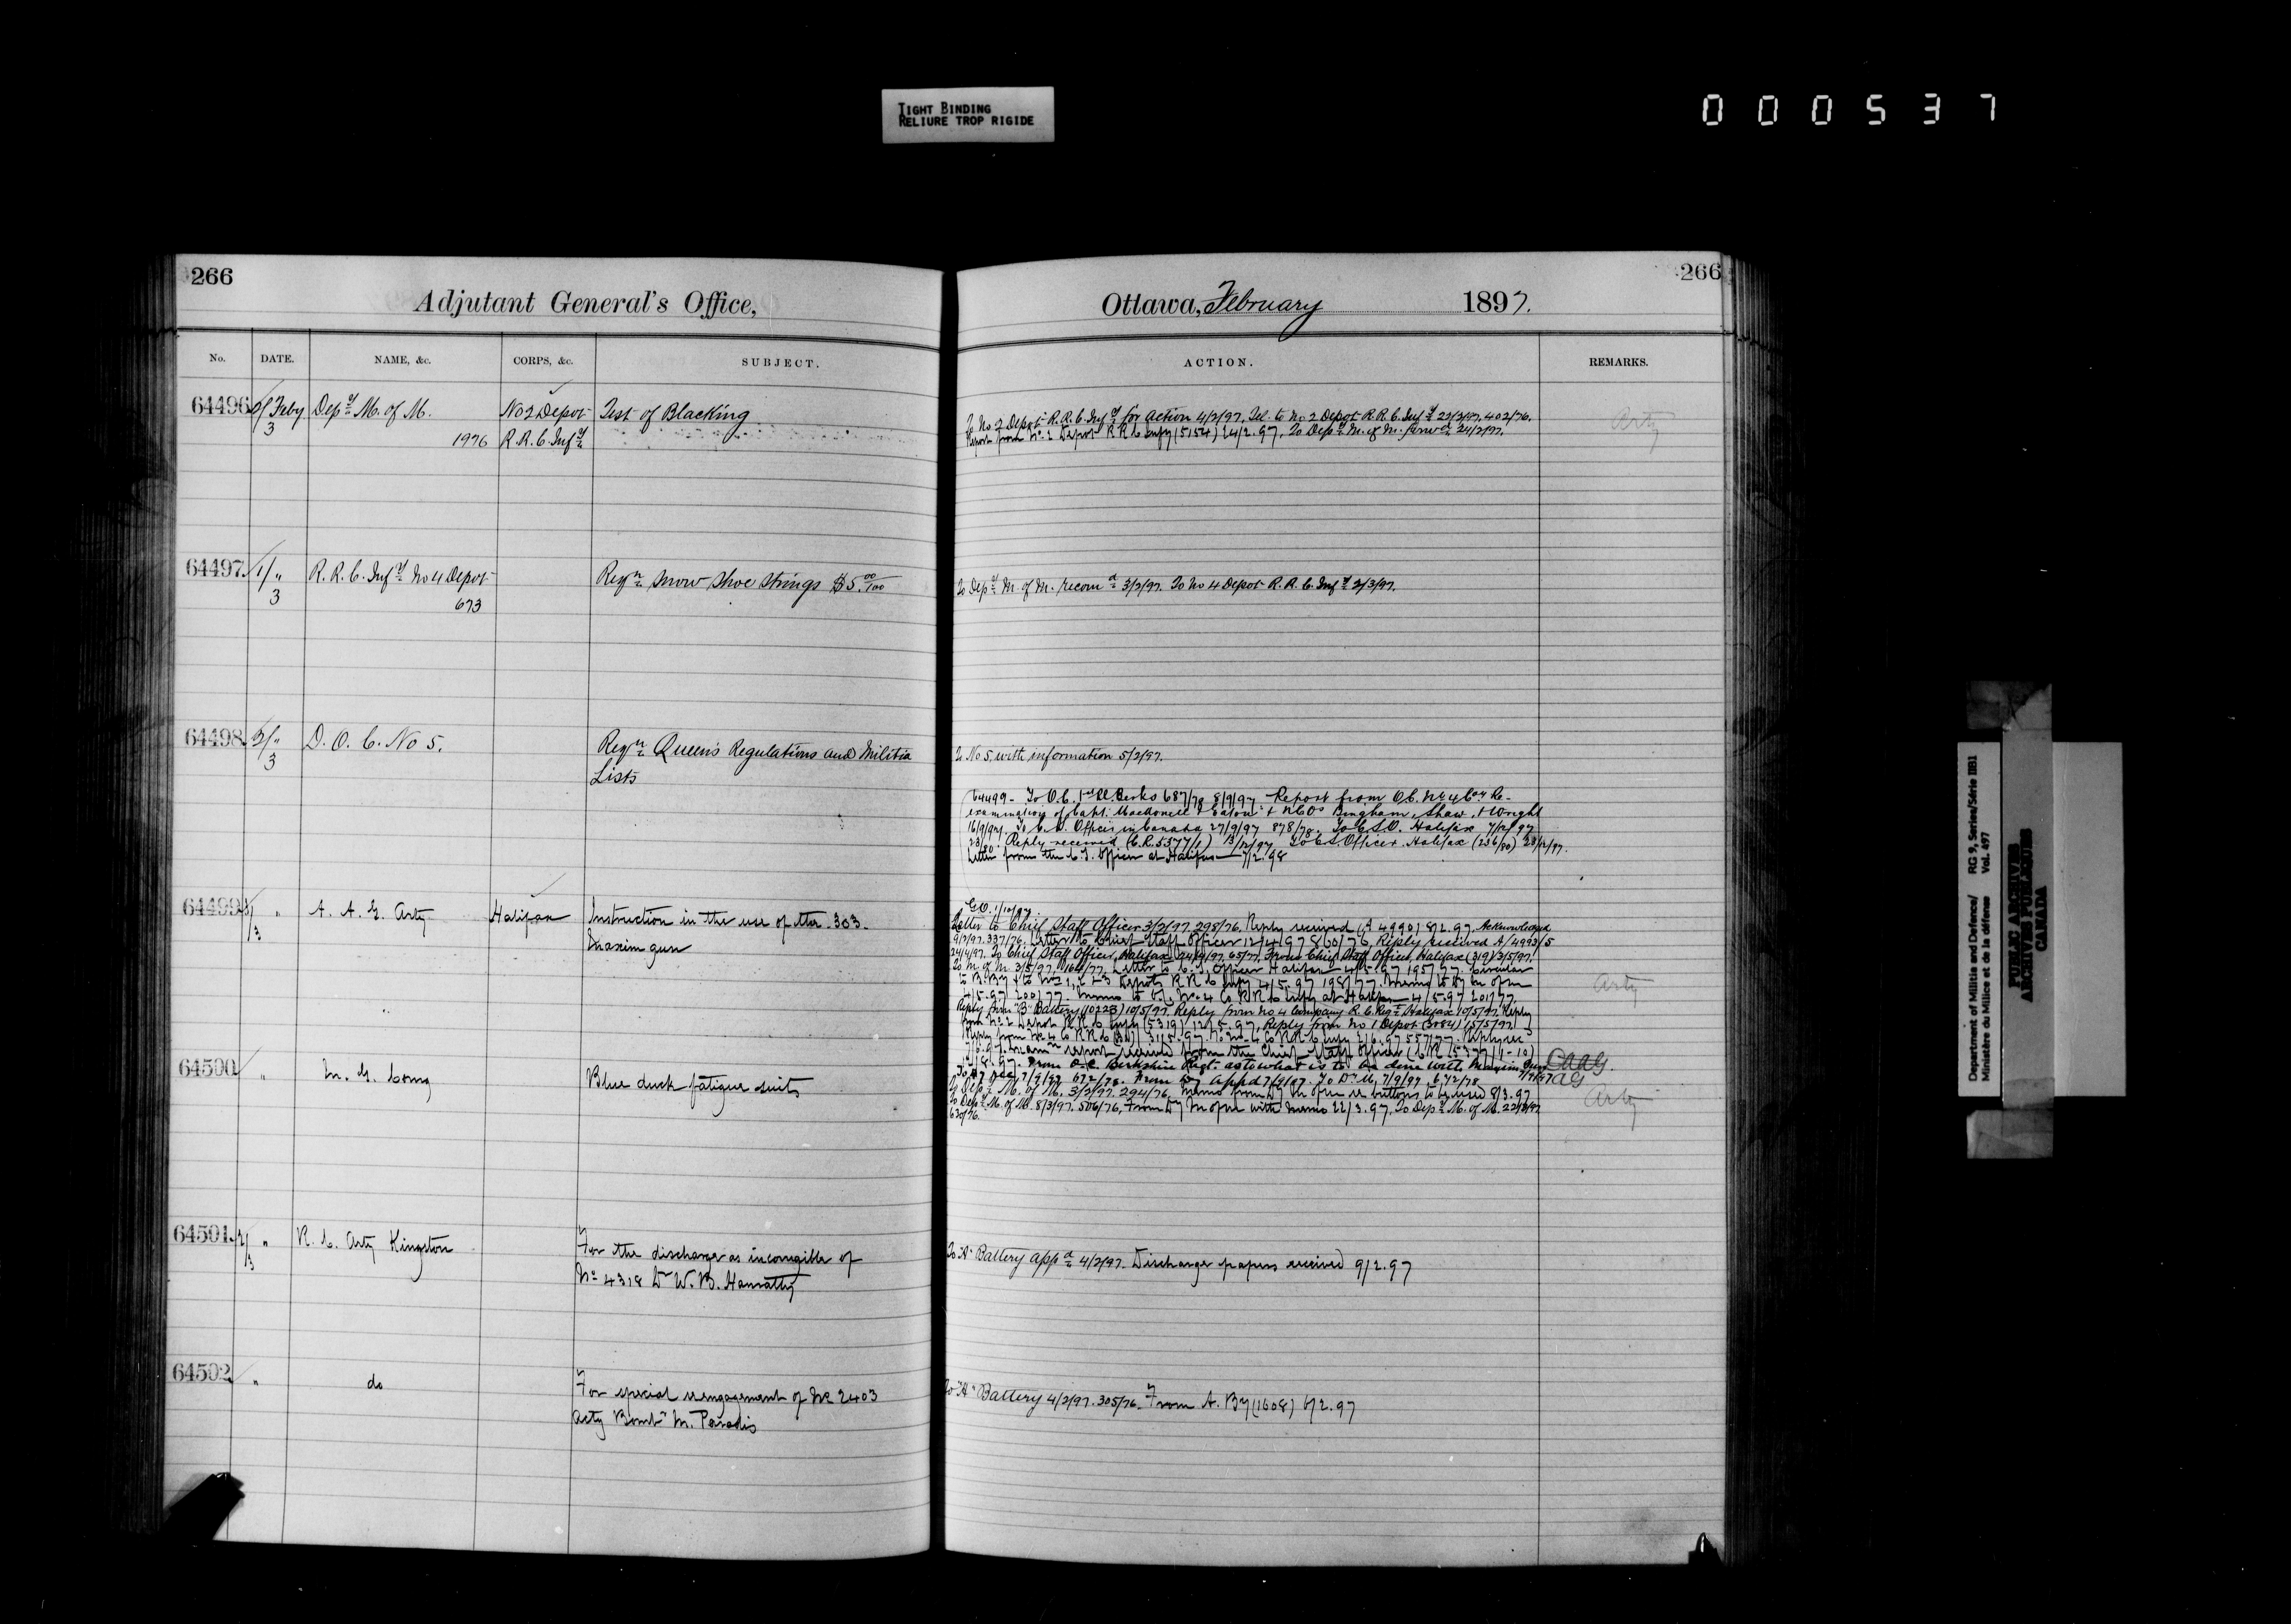 TIGHT BINDING
RELIURE TROP RIGIDE
000537
266
Adjutant General's Office,
Ottawa, February 1897.
266
No. DATE. NAME, &c. CORPS, &c. SUBJECT.
ACTION. REMARKS.
64496 Feby Depy M. of M. No 2 Depot Test of Blacking
3 1976 R.R.C. Infy
To No 2 Depot R.R.C. Infy for action 4/2/97. Tel. to No 2 Depot R.R.C. Infy 402/76.
Report from No 2 Depot R R C Infy (5154) 24/2.97. To Depy M. of M. 24/2/97.
Arty
64497 1/ " R. R. C. Infy No 4 Depot Reqn Snow Shoe Strings $5.00/100
3 673
To Depy M. of M. recomd 3/2/97. To No 4 Depot R. R. C. Infy 2/3/97.
64498 2/ " D. O. C. No 5. Reqn Queen's Regulations and Militia
3 Lists
To No 5 with information 5/2/97.
64499 - To O.C. Berks 687/78 8/9/97 Report from O.C. No 4 Coy Re-
examination of Capt. Macdonell & Eaton & NCOs Bingham, Shaw, & Wright
16/9/97. To Officer in Canada 27/9/97 878/78. To C.S.O. Halifax
Reply received (C.R. 5377/1) To C.S. Officer Halifax (236/80)
Letter from the C.S. Officer at Halifax 7/2.98
64499 " A. A. G. Arty Halifax Instruction in the use of the .303
3 Maxim gun
G.O. 1/10/97
Letter to Chief Staff Officer 3/2/97 298/76. Reply received (A 4990) 8/2.97. Acknowledged
9/2/97. 337/76. Letter to Chief Staff Officer 12/4/97 860/76. Reply received A/4993/5
24/4/97. To Chief Staff Officer, Halifax 24/4/97 65/77. From Chief Staff Officer, Halifax (319) 3/5/97.
To M. of M. 3/5/97. 164/77. Letter to C. S. Officer Halifax 4/5.97 195/77. Circular
to B. By & to Nos 1, 2 & 3 Depots R R C Infy 4/5.97 198/77. Memo to
4/5.97 200/77. Memo to No 4 Co R R C Infy at Halifax 4/5.97 201/77.
Reply from "B" Battery (10223) 10/5/97. Reply from No 4 Company R. C. Regt Halifax 10/5/97. Reply
from No 2 Depot R R C Infy (5319) 12/5.97. Reply from No 1 Depot (3084) 15/5/97.
Reply from No 4 Co R R C 31/5.97. To No 4 Co R R C Infy 2/6.97 557/77.
report received from the Chief Staff Officer (C R 5377/1-10)
From O.C. Berkshire Regt. as to what is to be done with Maxim Gun
7/9/97 672/78. From appd 7/9/97. To 7/9/97 672/78
Arty
AG
64500 " M. G. Long Blue duck fatigue suits
To Depy M. of M. 3/2/97. 294/76. Memo from re buttons to be used 8/3.97
To Depy M. of M. 8/3/97. 506/76. From with Memo 22/3.97. To Depy M. of M.
630/76.
Arty
64501 2/ " R. C. Arty Kingston For the discharge as incorrigible of
3 No 4318 Dr W. B. Hanratty
To "A" Battery appd 4/2/97. Discharge papers received 9/2.97
64502 " do For special reengagement of No 2403
acty Bombr M. Paradis
To "A" Battery 4/2/97. 305/76. From A. By (1608) 6/2.97
Department of Militia and Defence/ RG 9, Series/Série IIB1
Ministère du Milice et de la défense Vol. 497
PUBLIC ARCHIVES
ARCHIVES PUBLIQUES
CANADA